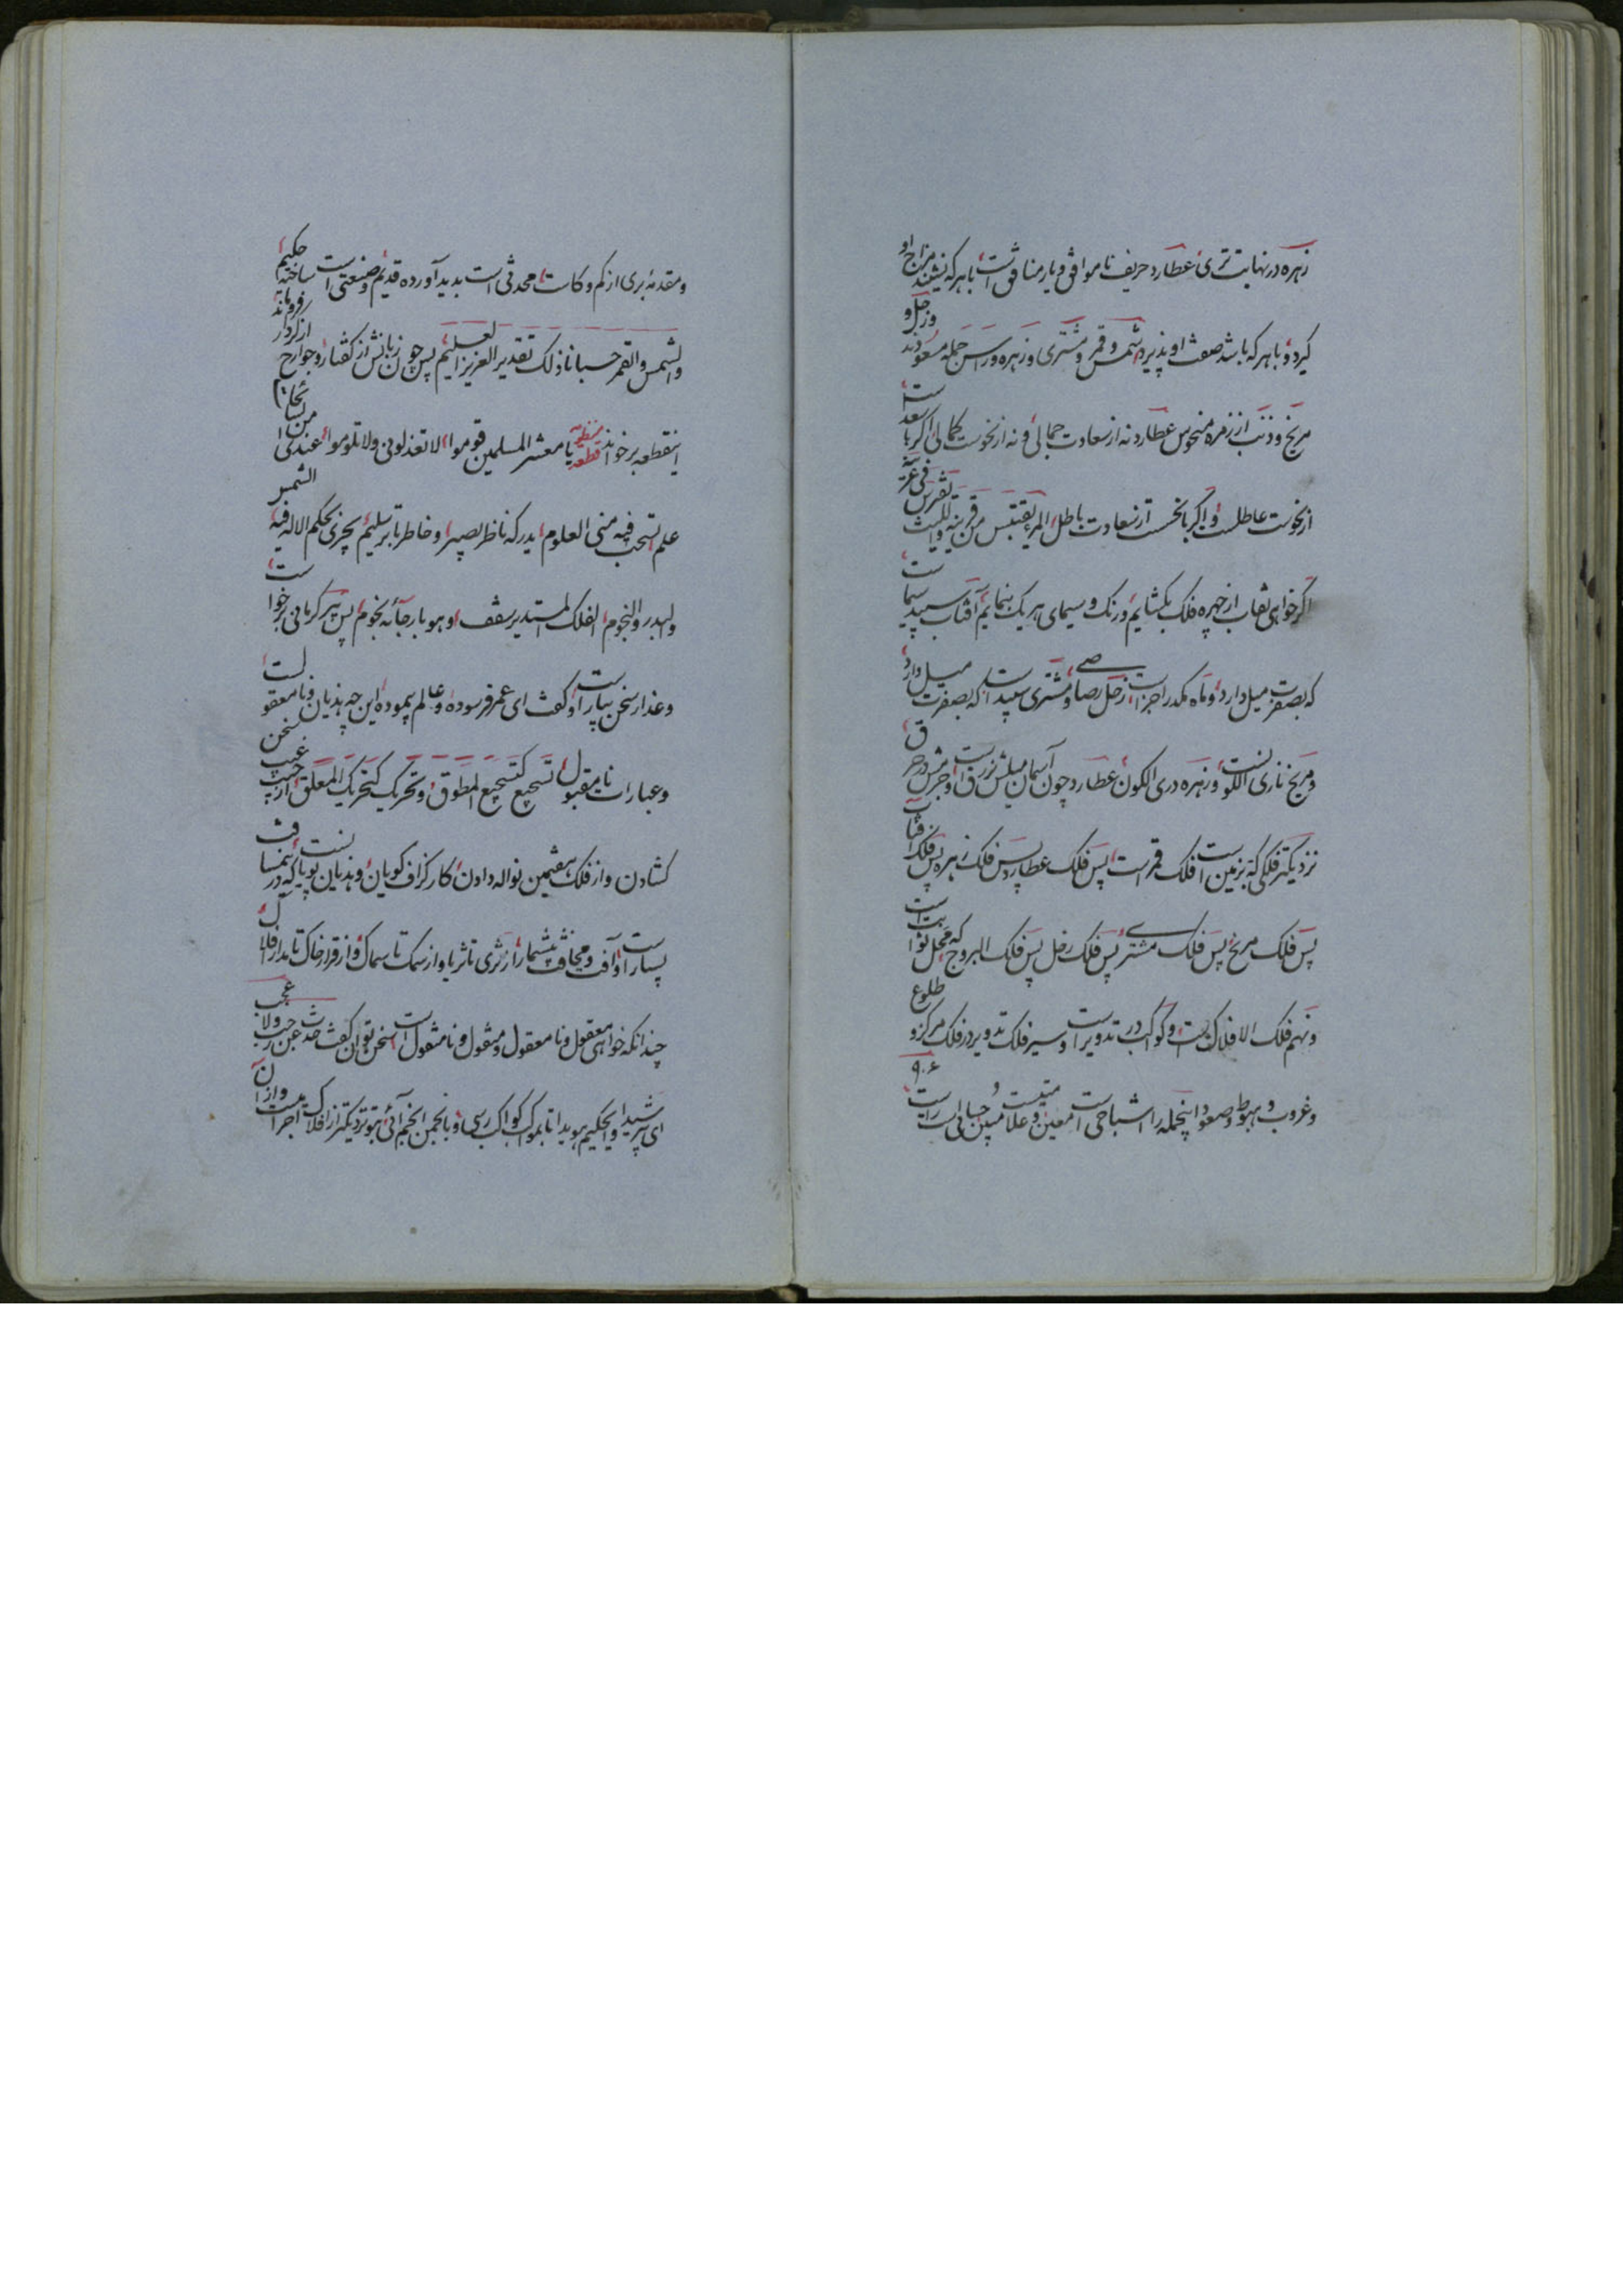 زهره در نهایت تری عطارد حریف ناموافق و یار منافق است با هر که نشیند مزاج او
گیرد و با هر که باشد صفت او پذیرد شمس و قمر و مشتری و زهره و رأس جمله مسعودند و زحل و
مریخ و ذنب از زمره منحوس عطارد نه از سعادت جمالی و نه از نحوست کمالی اگر با سعد است
از نحوست عاطلست و اگر با نحس است از سعادت باطل المرء یقتبس من قرینه و اللیث یفرس فی عرینه
اگر خواهی نقاب از چهره فلک بگشایم و رنگ و سیمای هر یک بنمایم آفتاب سپید سیما است
که بصفرت میل دارد و ماه مکدر اجزاست زحل رصاصی و مشتری سپید است که بصفرت میل دارد
و مریخ ناری اللونست و زهره دری الکون عطارد چون آسمان میلش بزرقت است و جرمش در حرق
نزدیکتر فلکی که بزمین است فلک قمر است پس فلک عطارد پس فلک زهره پس فلک آفتاب
پس فلک مریخ پس فلک مشتری پس فلک زحل پس فلک البروج که محل ثوابت است
و نهم فلک الافلاک است و کواکب در تدویر است و سیر فلک تدویر در فلک مرکز و طلوع
و غروب و هبوط و صعود اینجمله را اشباحی است معین و علامتیست مبین و حسابی است راست
و مقدمه بری از کم و کاست محدثی است بدید آورده قدیم و صنعتی است ساخته حکیم
والشمس والقمر حسبانا ذلک تقدیر العزیز العلیم پس چون زبانش از گفتار و جوارح از کردار فروماند
اینقطعه برخواند منظومه قطعه یا معشر المسلمین قوموا لا تعذلونی ولا تلوموا عندی من
علم تستحب فیه منی العلوم یدرکه ناظر بصیر و خاطر ثابر سلیم یجری بحکم الاله فیه الشمس
والبدر والنجوم الفلک المستدیر سقف و هو بارجائه نجوم پس پیر کرمانی برخواست
و عذار سخن بیاراست و گفت ای عمر فرسوده و عالم پیموده این چه هذیان نامعقولست
و عبارات نامقبول تسجیع کتسجیع المطوق و تحریک کتحریک المعلق از جیب غیب سخن
گشادن و از فلک هفتمین نواله دادن کار گزاف گویان و هذیان پویانست که در آن مسافت
بسیار است و آفت و مخافت بیشمار از ثری تا ثریا و از سمک تا سماک و از قرار خاک تا مدار افلاک
چندانکه خواهی معقول و نامعقول و منقول و نامنقول است سخن توان گفت حدث عن رجب ولا عجب
ای پیر شیدا و ای حکیم هویدا تا بموکب کواکب رسی و بانجمن انجم آئی بتو نزدیکتر از افلاک اجزاست و از آن